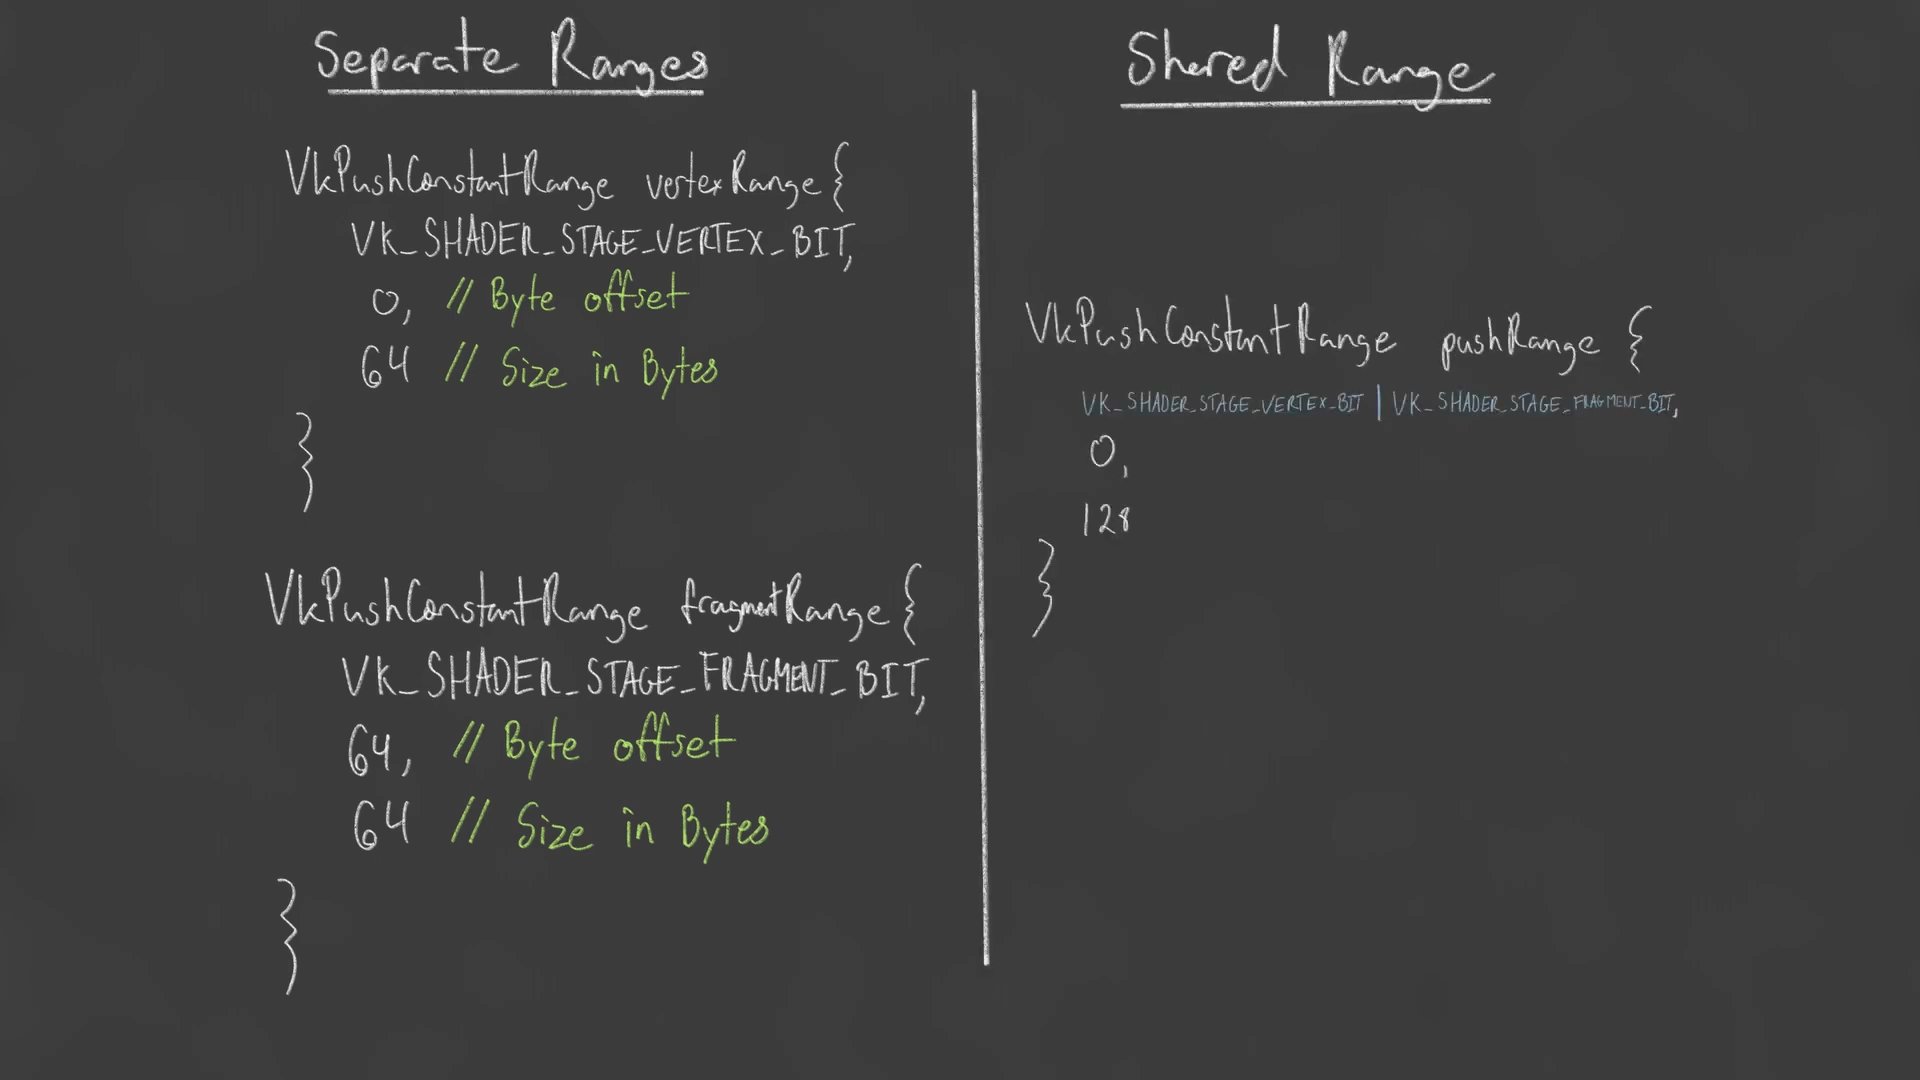 Separate Ranges
VkPushConstantRange vertexRange {
VK_SHADER_STAGE_VERTEX_BIT,
0, // Byte offset
64 // Size in Bytes
}
VkPushConstantRange fragmentRange {
VK_SHADER_STAGE_FRAGMENT_BIT,
64, // Byte offset
64 // Size in Bytes
}
Shared Range
VkPushConstantRange pushRange {
VK_SHADER_STAGE_VERTEX_BIT | VK_SHADER_STAGE_FRAGMENT_BIT,
0,
128
}